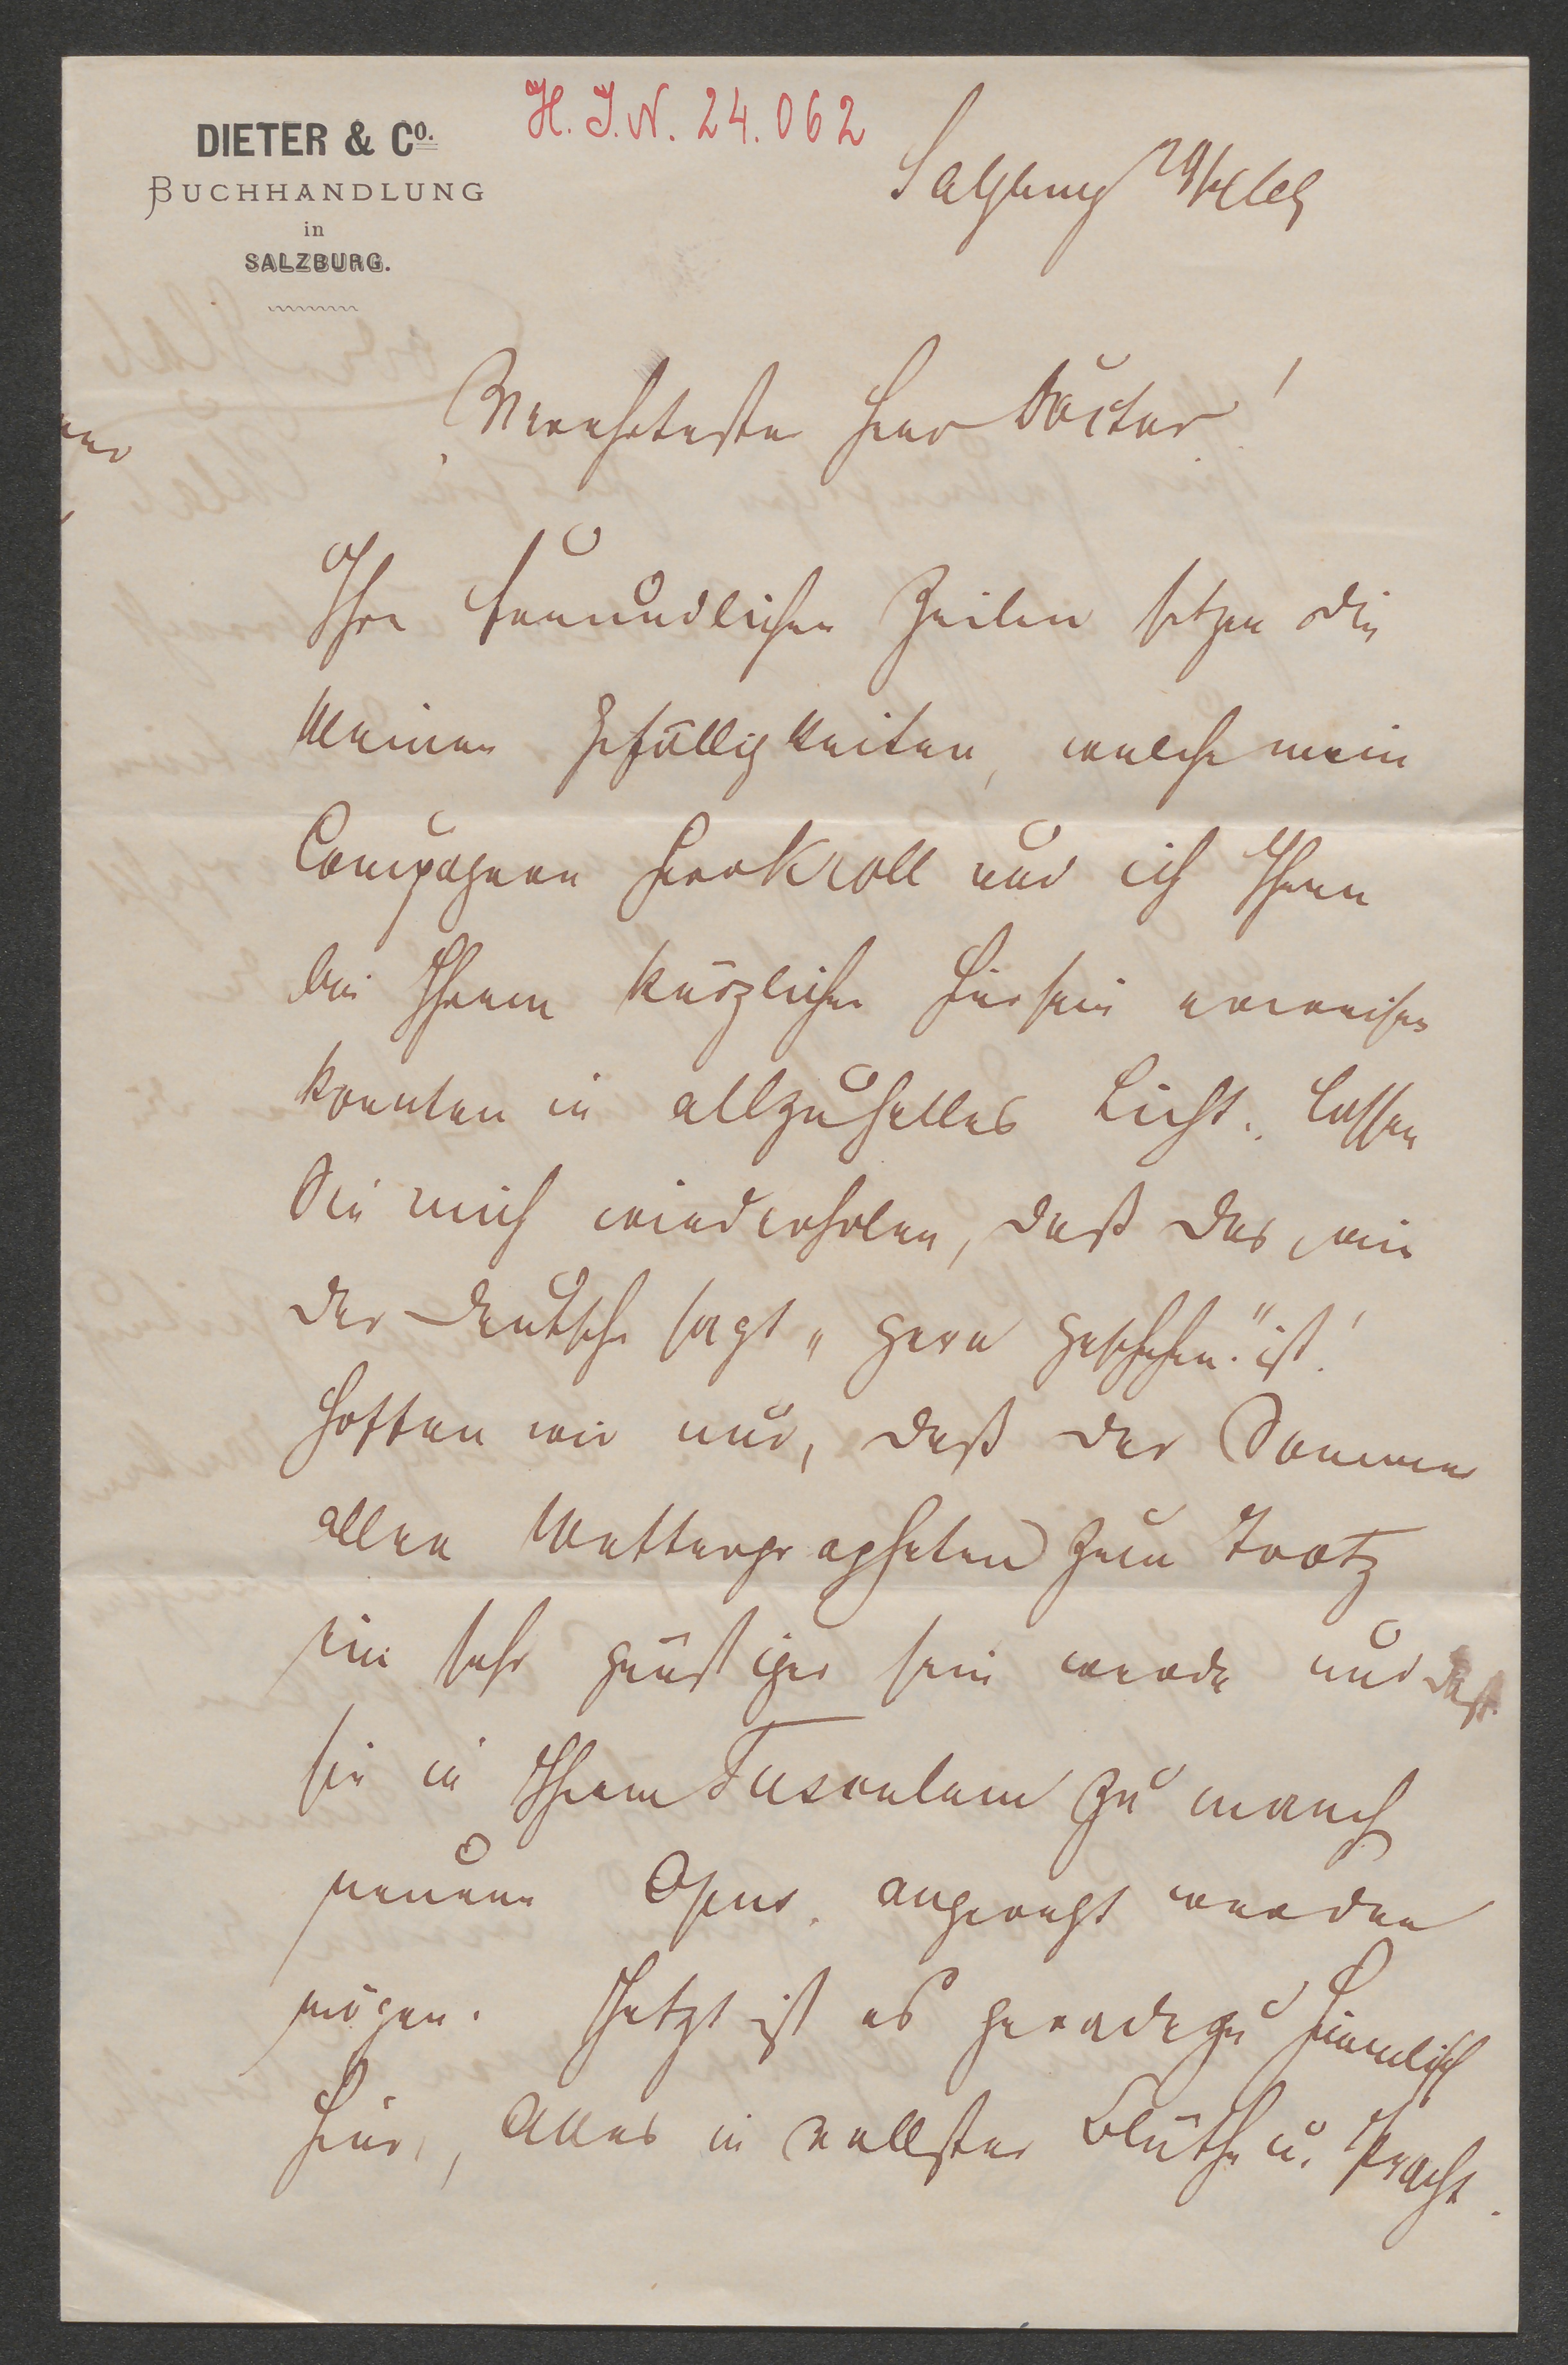 H. J. N. 24.062
DIETER & Co.
BUCHHANDLUNG
in
SALZBURG.
Salzburg
Verehrtester Herr Doctor!
Ihre freundlichen Zeilen setzen die
kleinen Gefälligkeiten, welche mein
Compagnon Herr Kroll und ich Ihnen
bei Ihrem kürzlichen Hiersein erweisen
konnten in allzuhelles Licht. Lassen
Sie mich wiederholen, daß das, wie
der Deutsche sagt „gern geschehen" ist!
Hoffen wir nur, daß der Sommer
allen Wetterpropheten zum Trotz
ein sehr günstiger sein werde und daß
sie in Ihrem Tusculum zu manch
neuem Opus angeregt werden
mögen. Jetzt ist es geradezu himmlisch
hier, Alles in vollster Blüthe u. Pracht.